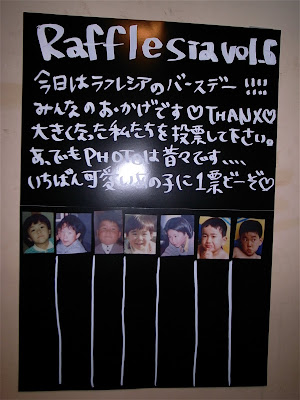 Rafflesia vol.6
今日はラフレシアのバースデー!!!!
みんなのおかげです♡THANX♡
大きくなった私たちを投票して下さい。
あ、でもPHOTOは昔々です、、、、
いちばん可愛い の子に1票どーぞ♡